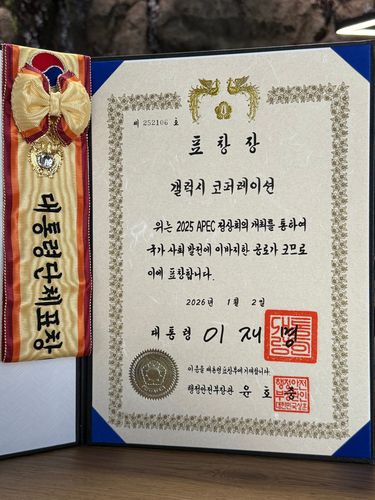 대통령단체표창
제 252106 호
표창장
갤럭시 코퍼레이션
위는 2025 APEC 정상회의 개최를 통하여
국가 사회 발전에 이바지한 공로가 크므로
이에 표창합니다.
2026년 1월 2일
대통령 이재명
이 증을 대통령표창부에 기재합니다.
행정안전부장관 윤호중